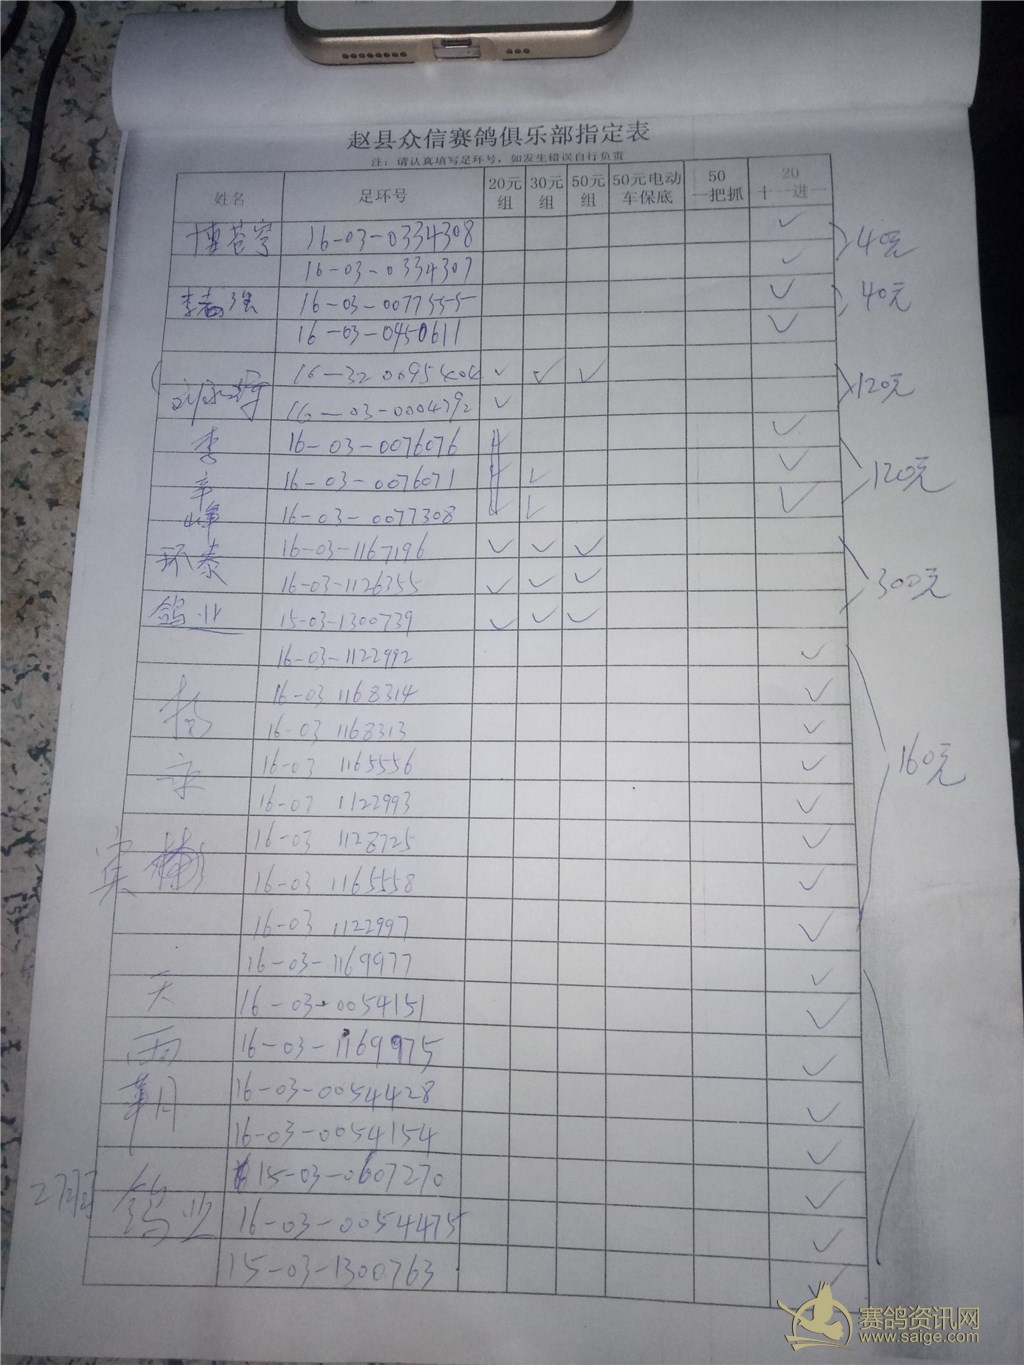 赵县众信赛鸽俱乐部指定表
注：请认真填写足环号，如发生错误自行负责
姓名 足环号 20元组 30元组 50元组 50元电动车保底 50一把抓 20十一进一
16-03-0334308 ✓
40元
16-03-0334307 ✓
16-03-0077555 ✓
40元
16-03-0450611 ✓
16-32 0095404 ✓ ✓ ✓
120元
16-03-0004792 ✓
李 16-03-0076076 ✓
16-03-0076071 ✓ ✓
120元
峰 16-03-0077308 ✓ ✓
环泰 16-03-1167196 ✓ ✓ ✓
16-03-1126355 ✓ ✓ ✓
300元
鸽业 15-03-1300739 ✓ ✓ ✓
16-03-1122992 ✓
杨 16-03 1168314 ✓
16-03 1168313 ✓
160元
16-03 1165556 ✓
16-03 1122993 ✓
16-03 1128725 ✓
16-03 1165558 ✓
16-03 1122997 ✓
16-03-1169977 ✓
天 16-03-0054151 ✓
雨 16-03-1169975 ✓
16-03-0054428 ✓
16-03-0054154 ✓
15-03-0607270 ✓
鸽业 16-03-0054475 ✓
15-03-1300763 ✓
赛鸽资讯网
www.saige.com